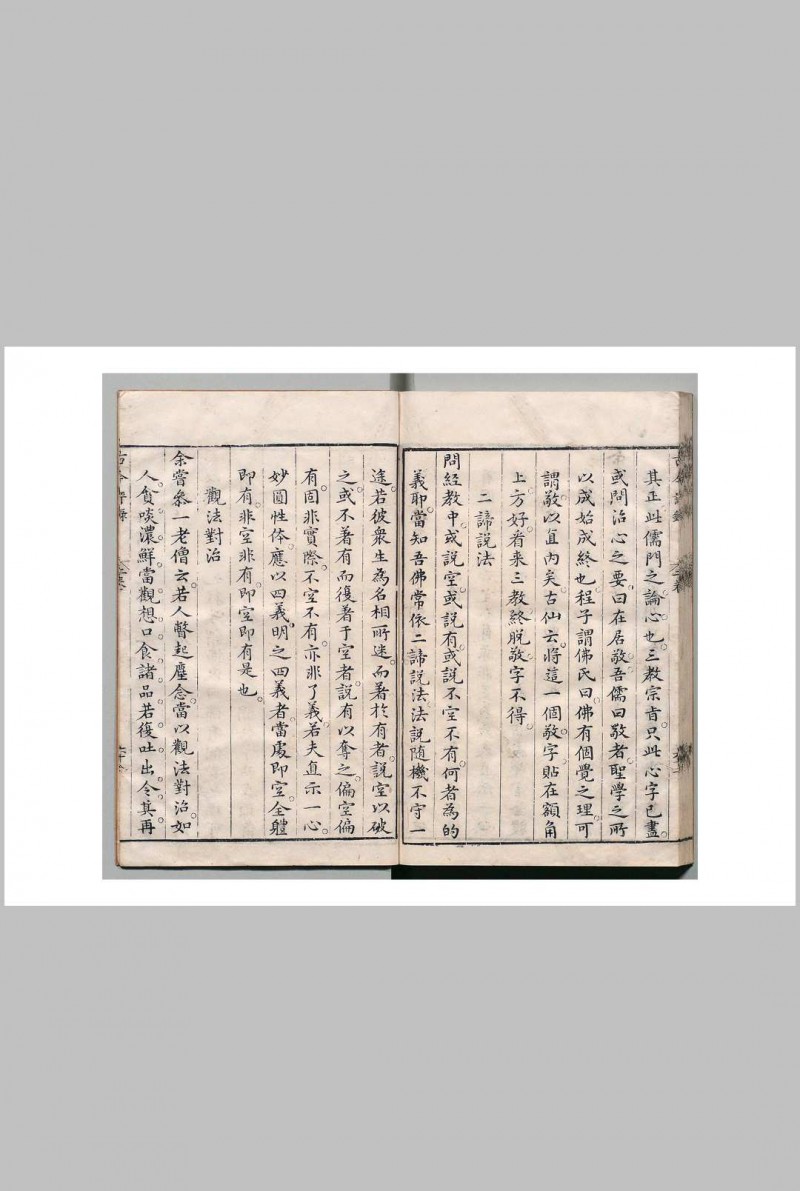 其正此儒門之論心也。三教宗旨。只此心字已盡。
或問治心之要。曰在居敬。吾儒曰敬者聖學之所
以成始成終也。程子謂佛氏曰。佛有個覺之理。可
謂敬以直內矣。古仙云。將這一個敬字。貼在額角
上方好。看来三教終脫敬字不得。
二諦説法
問經教中。或說空。或說有。或說不空不有。何者為的
義耶。當知吾佛常依二諦說法。法說隨機。不守一
途。若彼衆生為名相所迷。而著於有者。說空以破
之。或不著有而復著于空者。說有以奪之。偏空偏
有。固非實際。不空不有。亦非了義。若夫直示一心。
妙圓性体。應以四義明之。四義者。當處即空。全軆
即有。非空非有。即空即有是也。
觀法對治
余嘗叅一老僧。云若人瞥起塵念。當以觀法對治。如
人貪啖濃鮮。當觀想口食諸品。若復吐出。令其再